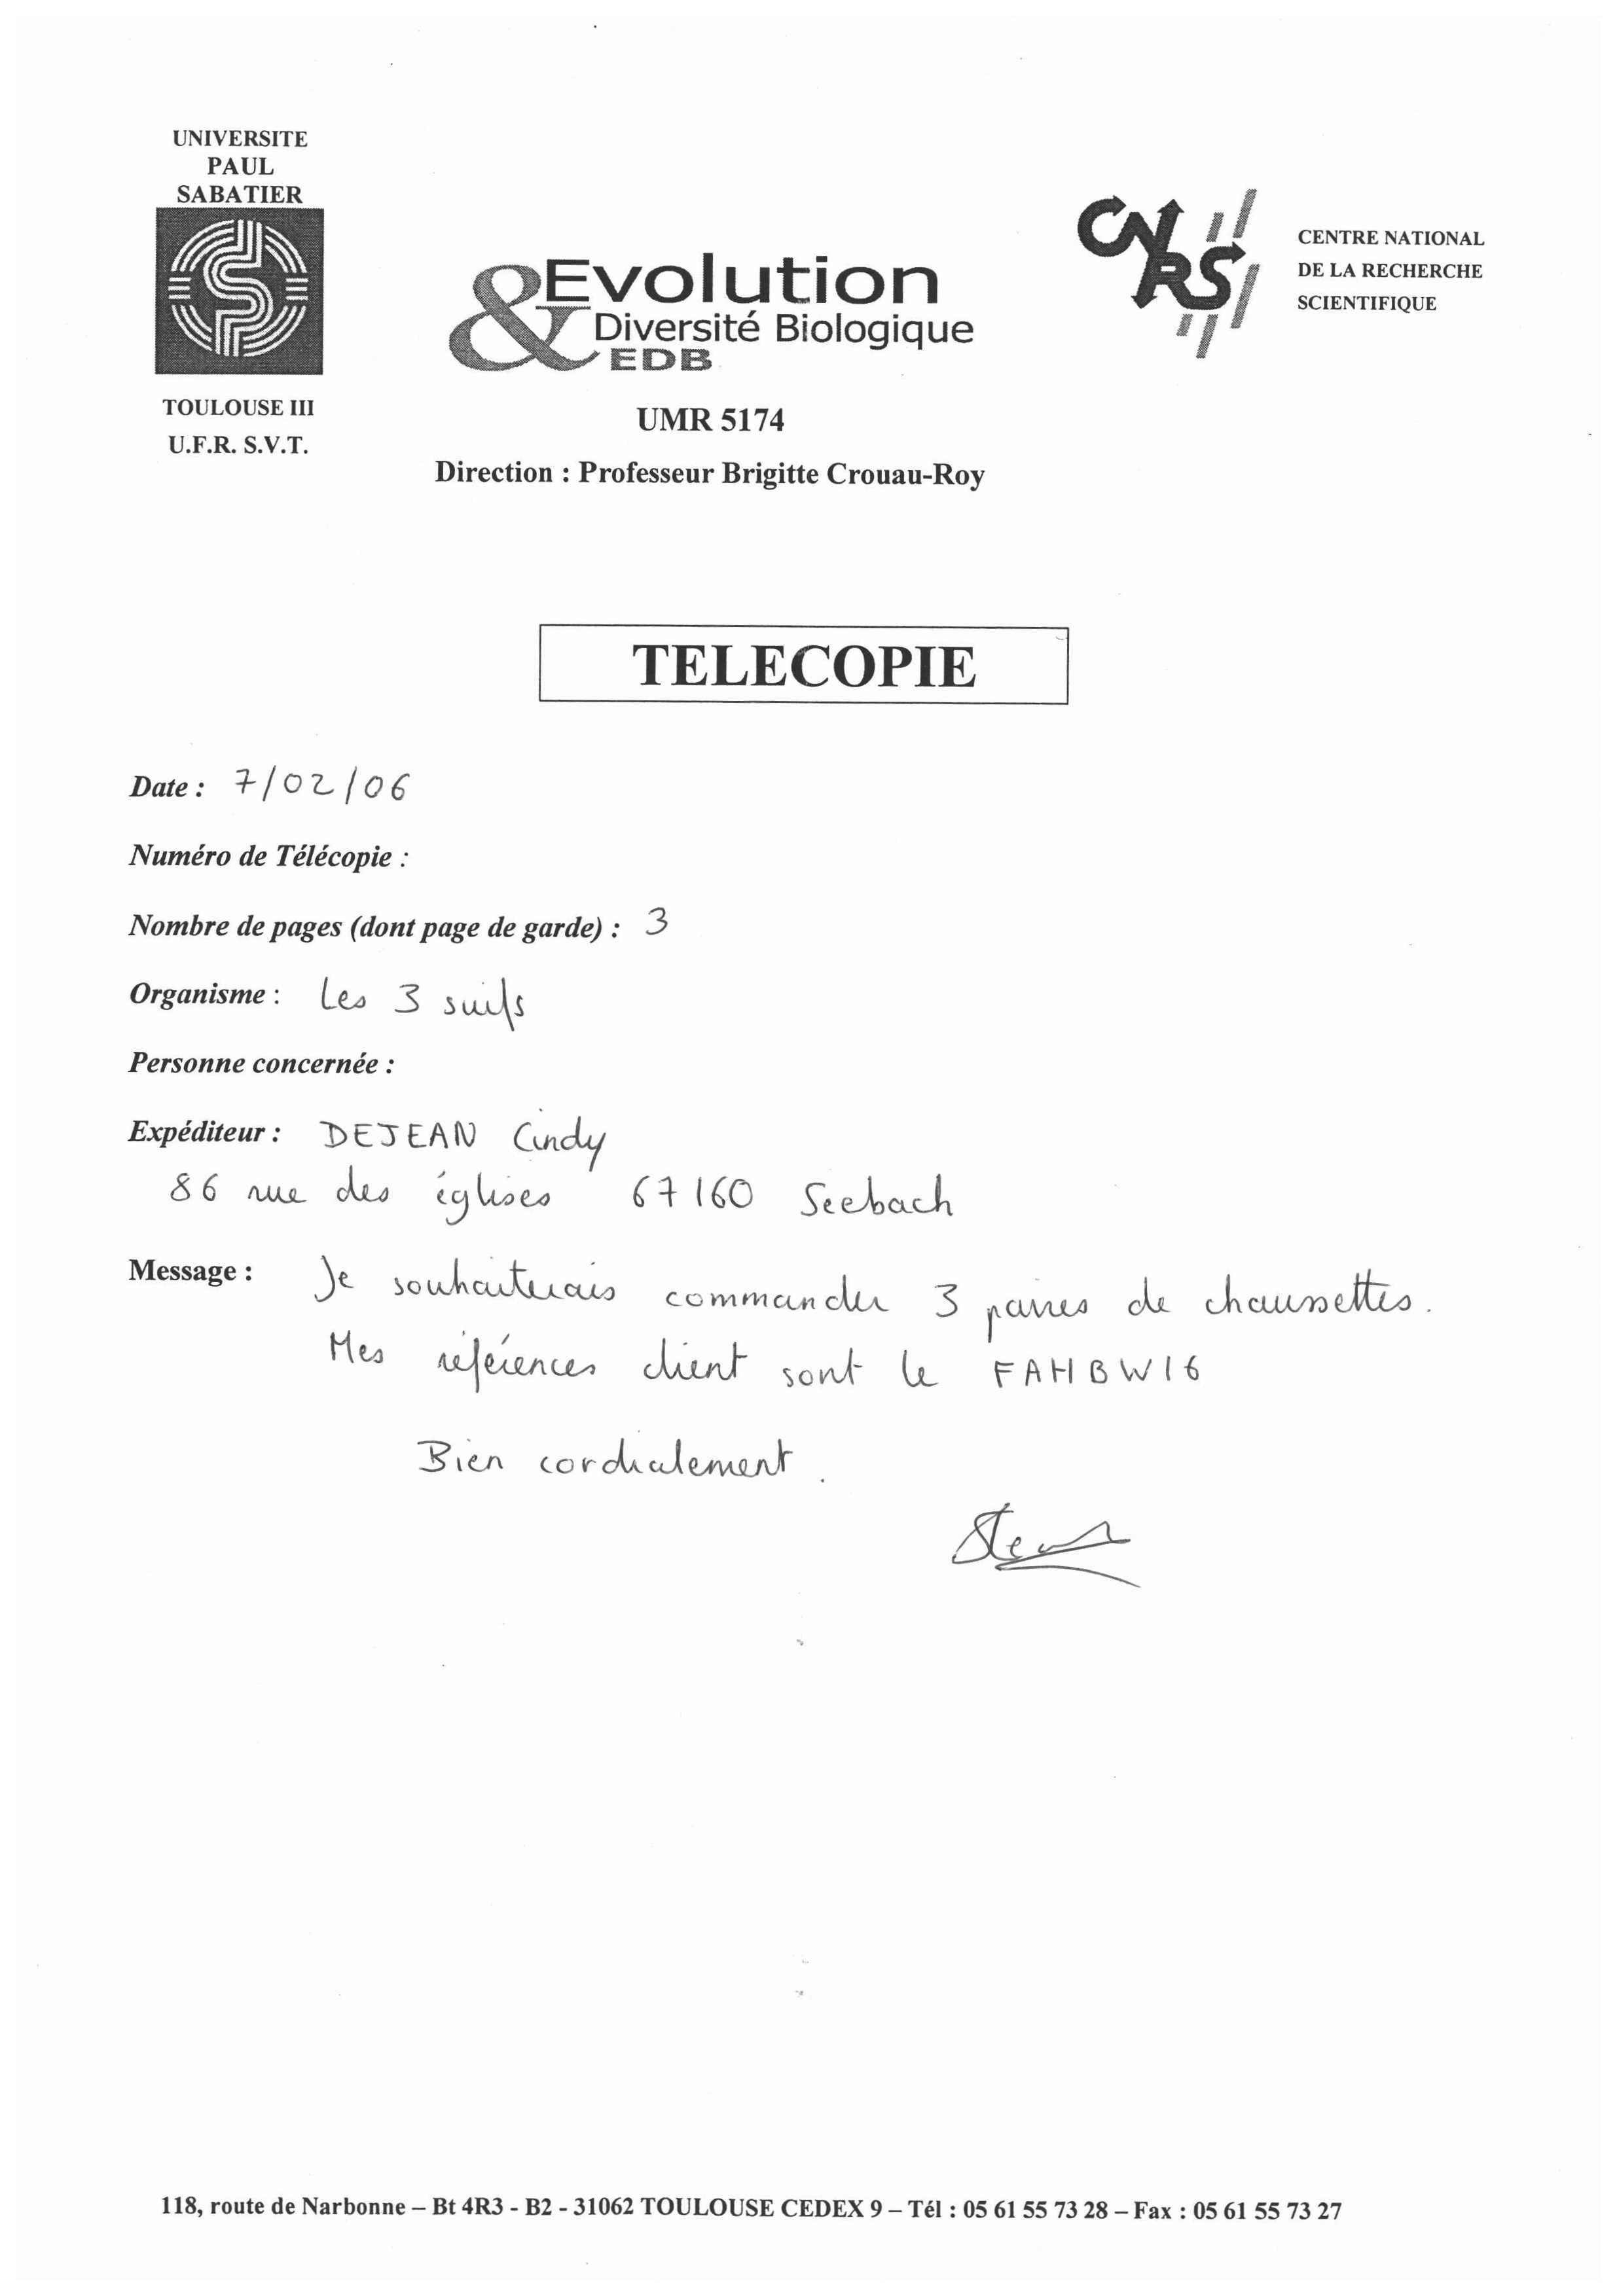 UNIVERSITE
PAUL
SABATIER
TOULOUSE III
U.F.R. S.V.T.
&Evolution
Diversité Biologique
EDB
UMR 5174
Direction : Professeur Brigitte Crouau-Roy
CNRS
CENTRE NATIONAL
DE LA RECHERCHE
SCIENTIFIQUE
TELECOPIE
Date : 7/02/06
Numéro de Télécopie :
Nombre de pages (dont page de garde) : 3
Organisme : Les 3 suifs
Personne concernée :
Expéditeur : DEJEAN Cindy
86 rue des églises 67160 Seebach
Message : Je souhaiterais commander 3 paires de chaussettes.
Mes références client sont le FAHBW16
Bien cordialement.
118, route de Narbonne – Bt 4R3 - B2 - 31062 TOULOUSE CEDEX 9 – Tél : 05 61 55 73 28 – Fax : 05 61 55 73 27